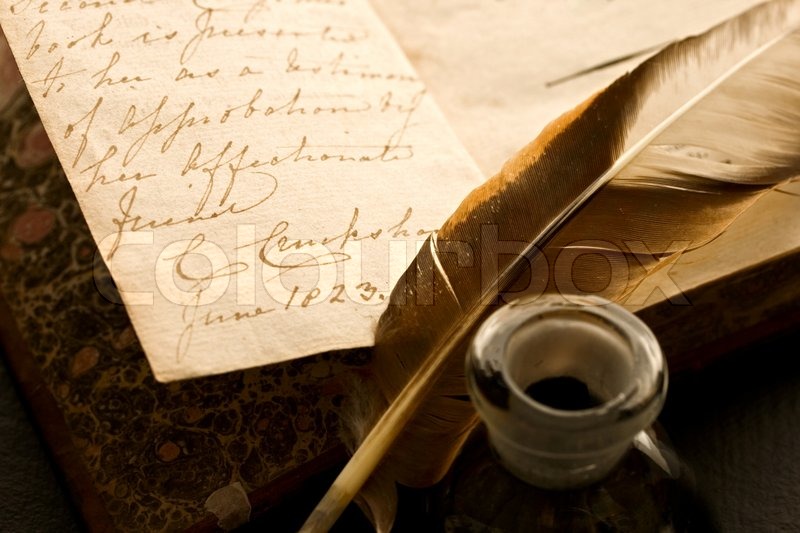 book is presented
to her as a testimony
of approbation by
her affectionate
friend
June 1823.
colourbox